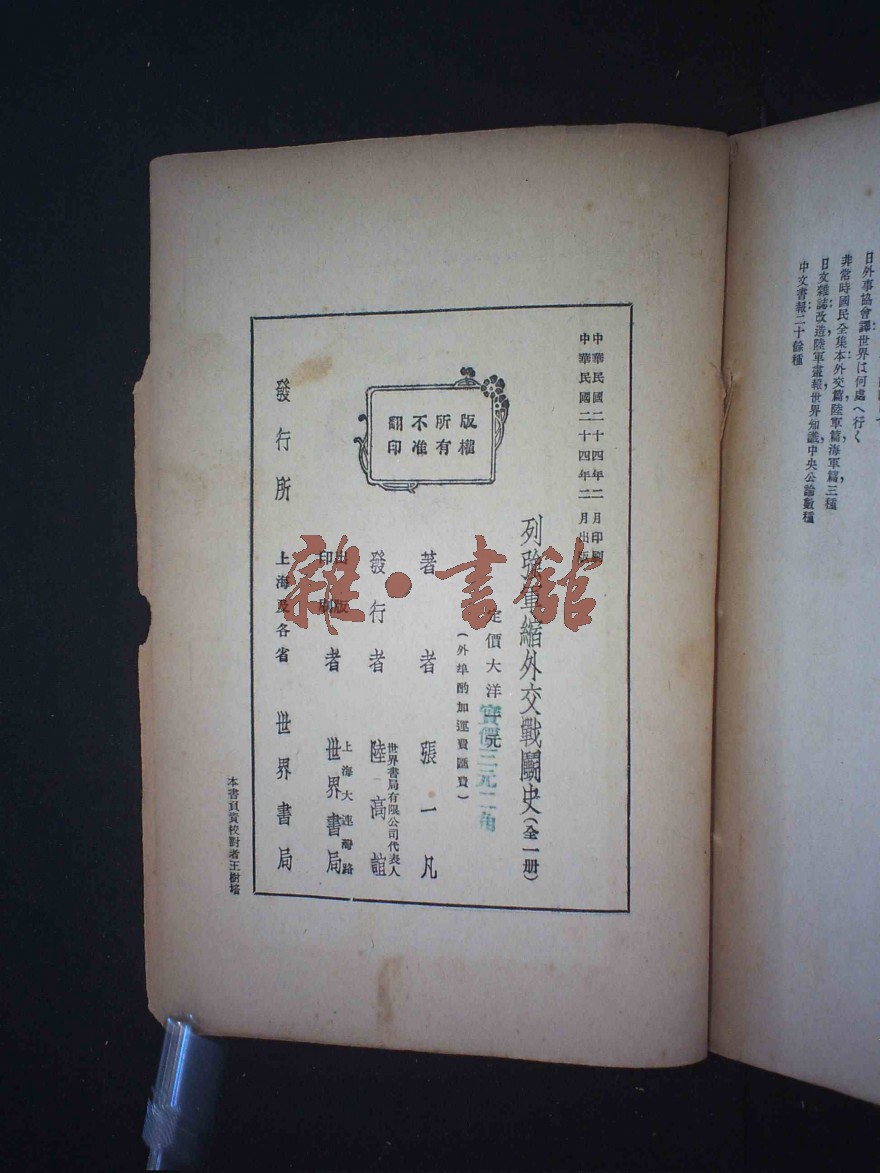 日外事協會譯:世界は何處へ行く
非常時國民全集本:外交篇,陸軍篇,海軍篇三種
日文雜誌:改造,陸軍畫報,世界知識,中央公論數種
中文書報:二十餘種
中華民國二十四年二月印刷
中華民國二十四年二月出版
列強軍縮外交戰鬭史(全一册)
定價大洋 元
實價三元二角
(外埠酌加運費匯費)
版權
所有
不准
翻印
著者 張一凡
發行者 世界書局有限公司代表人 陸高誼
出版印刷者 上海大連灣路 世界書局
發行所 上海及各省 世界書局
本書負責校對者王樹培
雜·書館